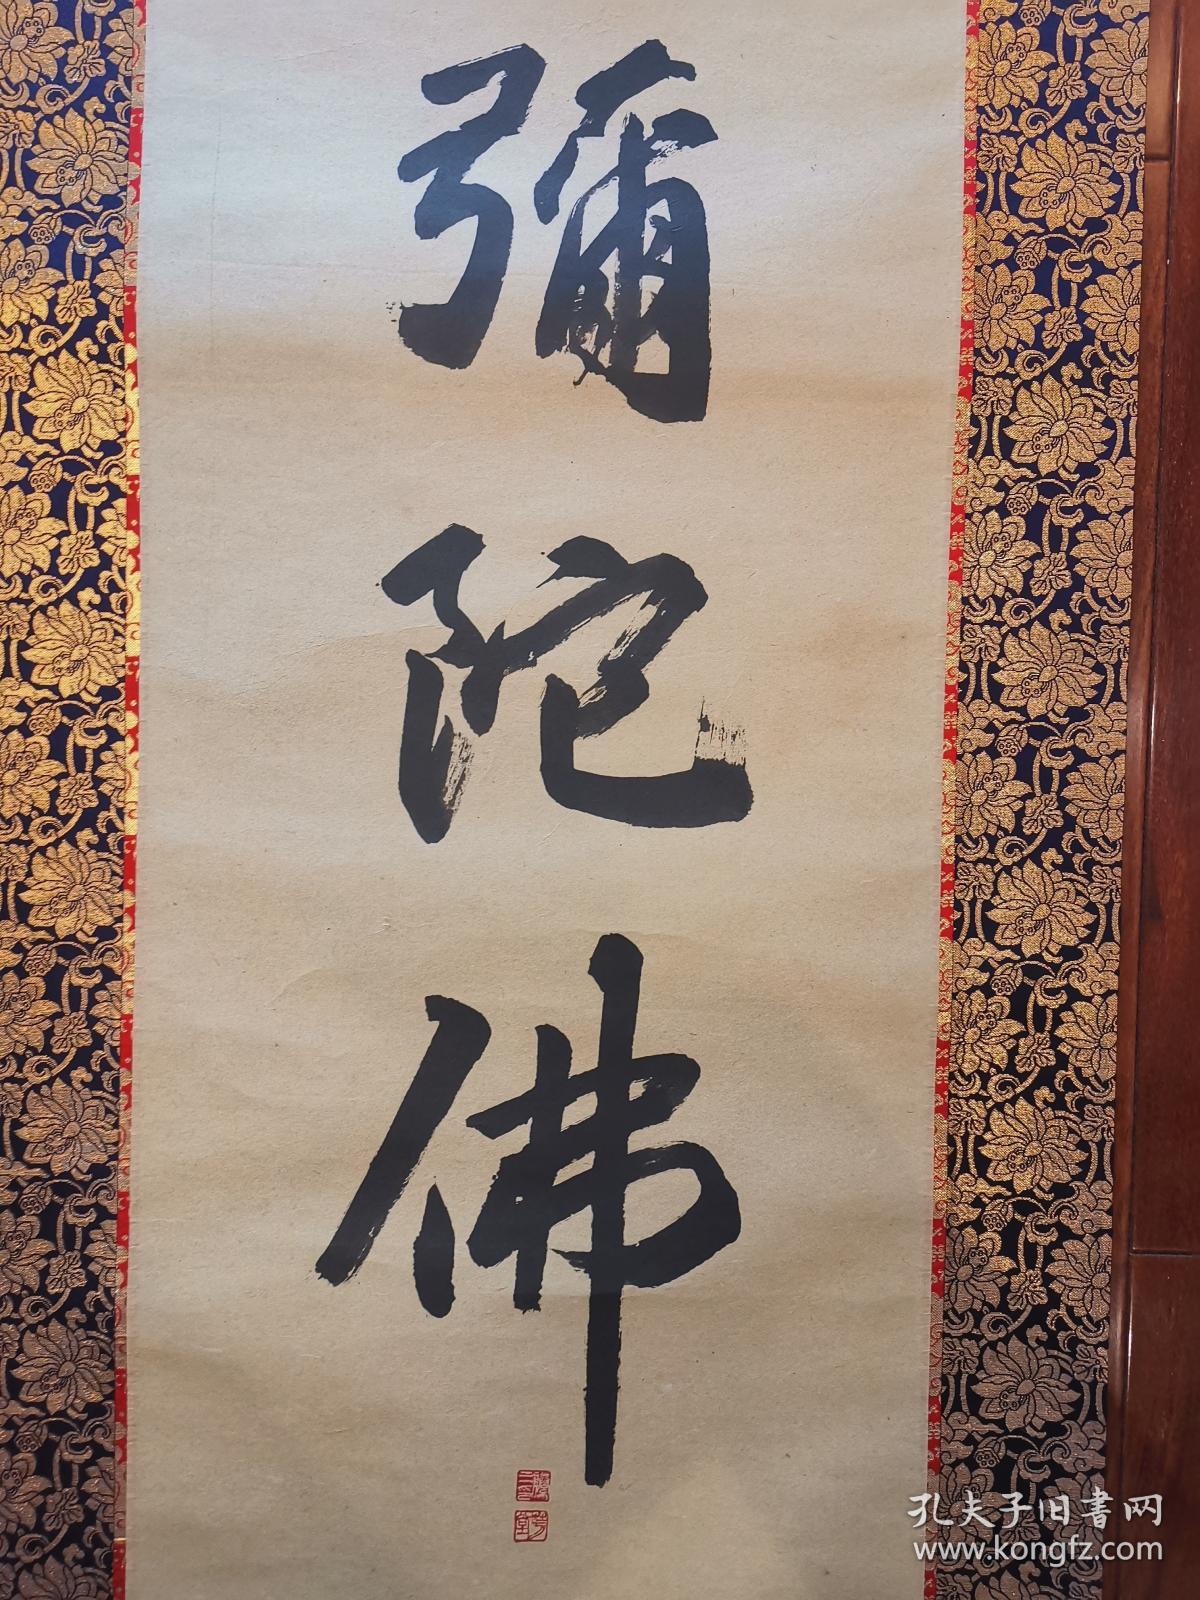 彌
陀
佛
孔夫子旧書网
www.kongfz.com